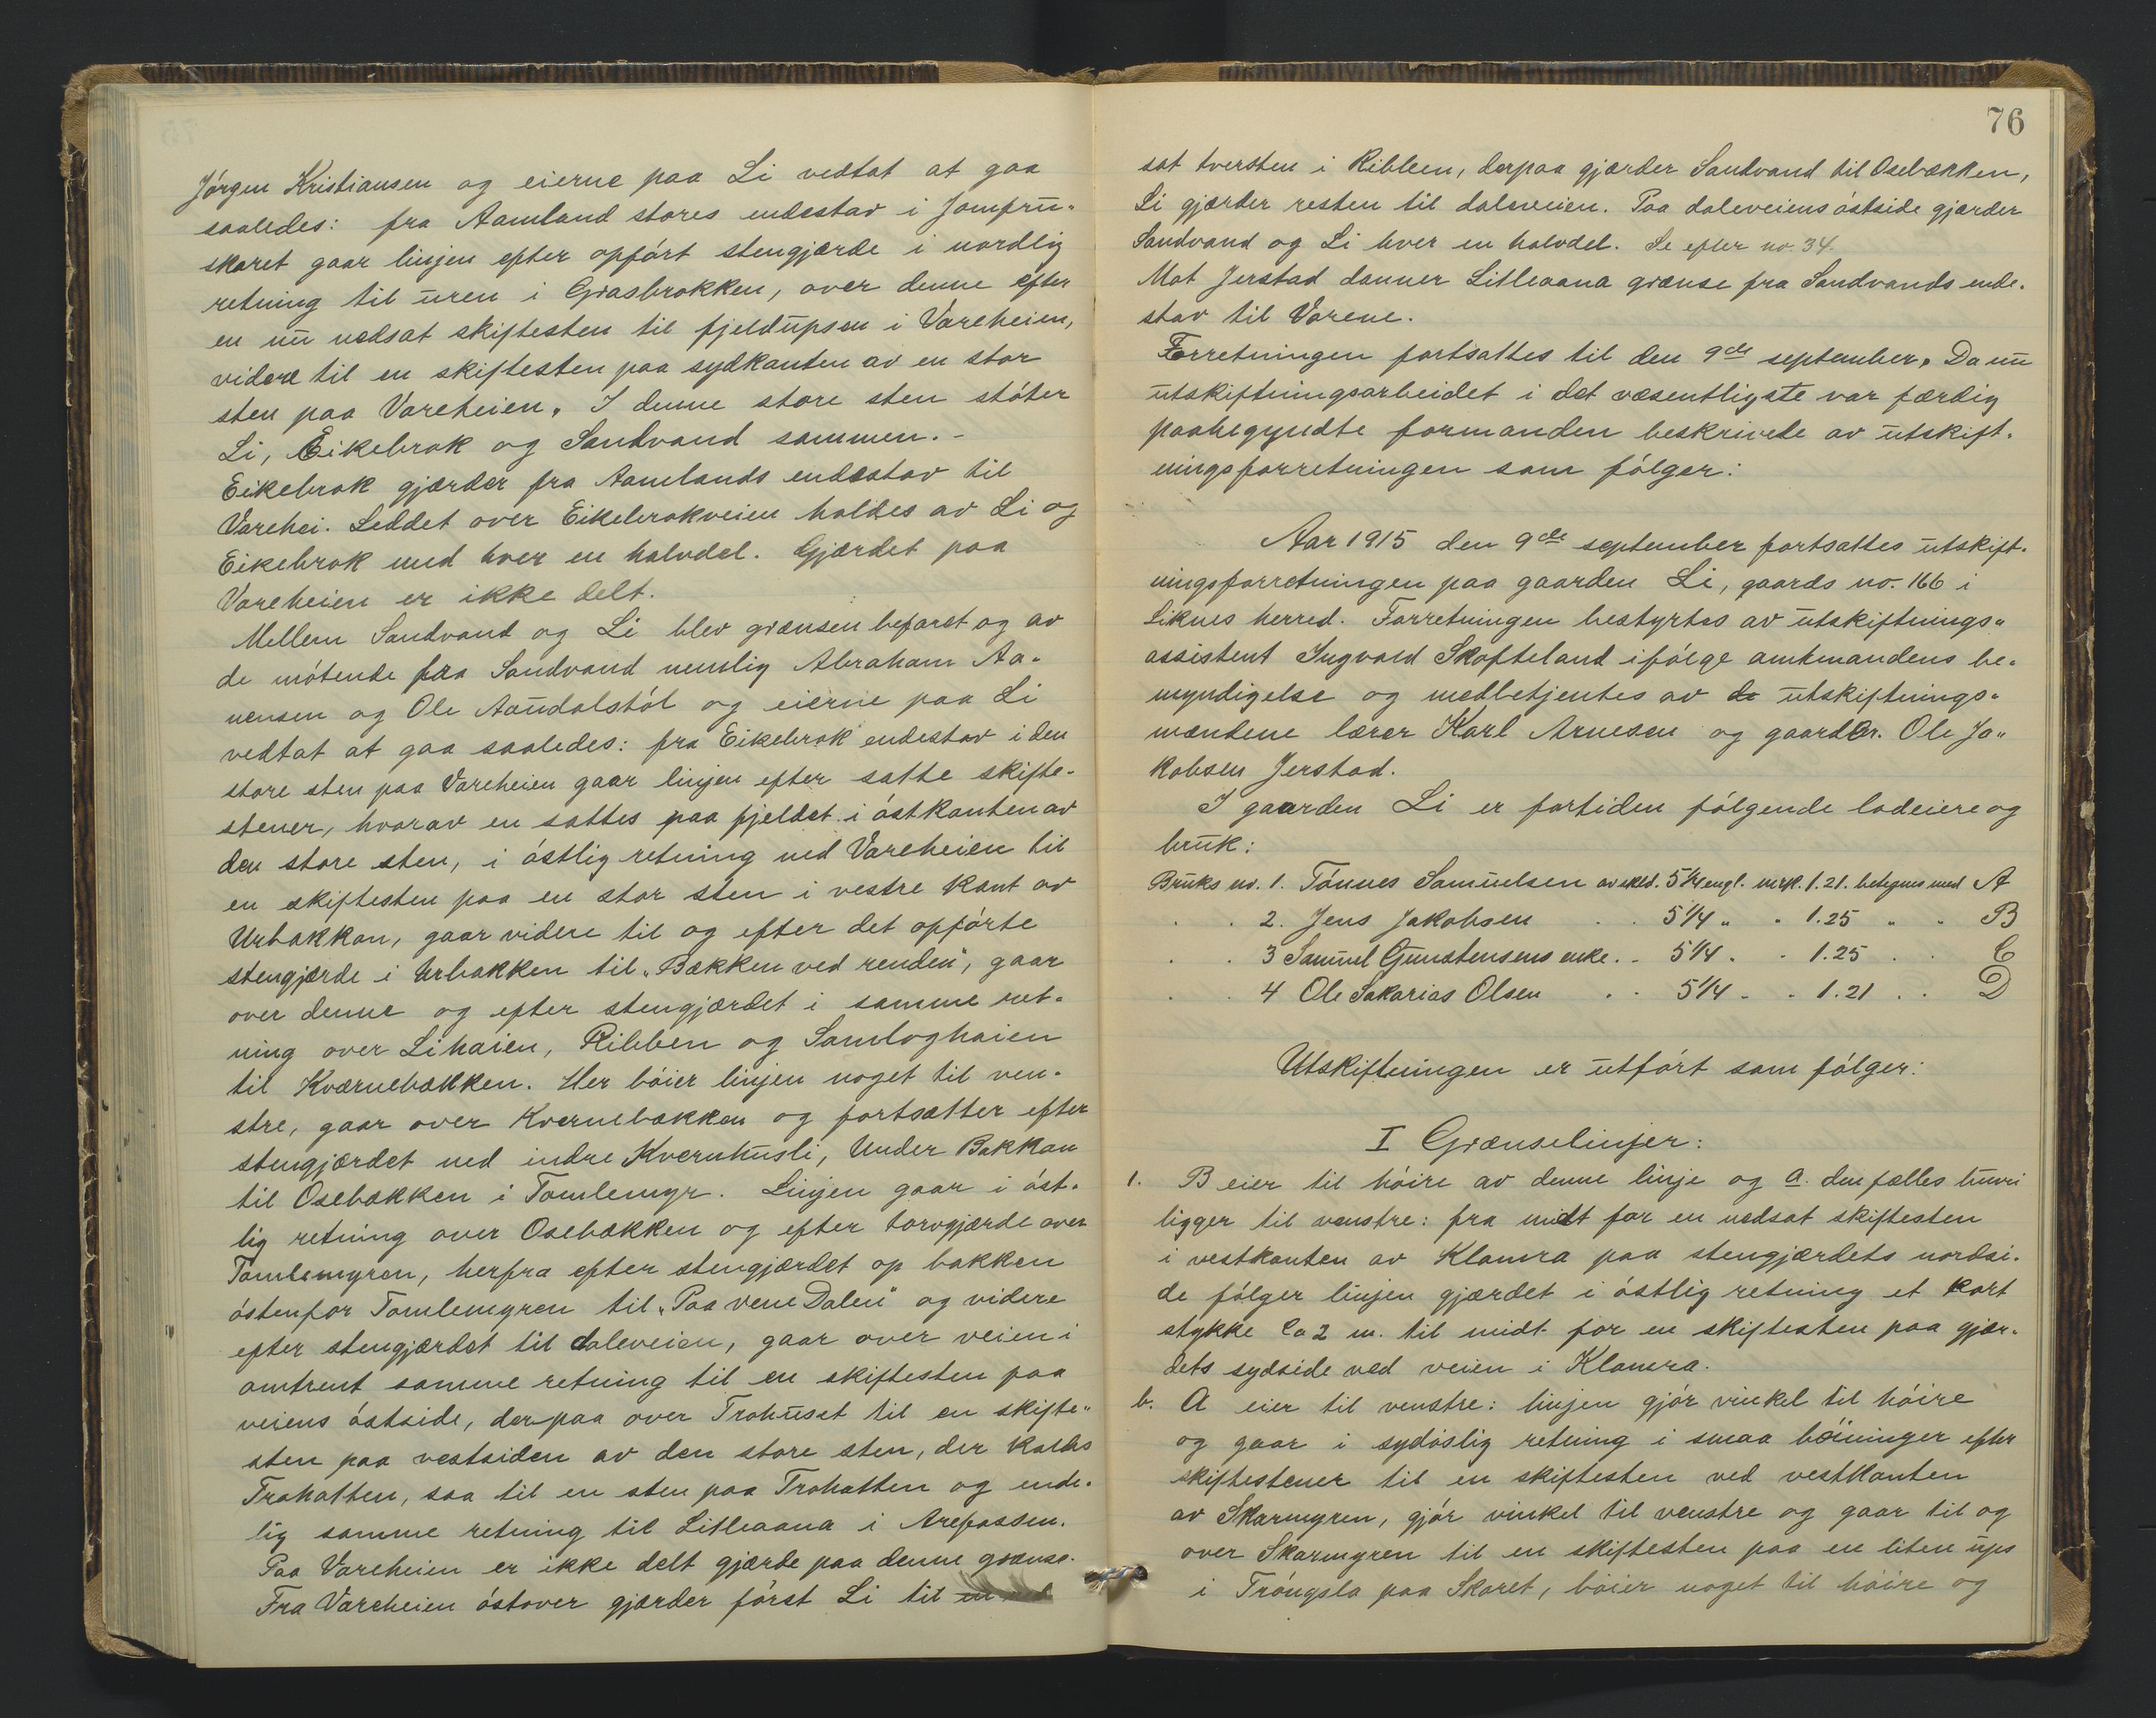 Jörgen Kristiansen og eierne paa Li vedtat at gaa
saaledes: fra Aamland stores endestav i Jomfru-
skaret gaar linjen efter opfört stengjærde i nordlig
retning til uren i Grasbrokken, over denne efter
en nu nedsat skiftesten til fjeldupsen i Vareheien,
videre til en skiftesten paa sydkanten av en stor
sten paa Vareheien. I denne store sten stöter
Li, Eikebrok og Sandvand sammen. -
Eikebrok gjærder fra Aamlands endestav til
Varehei. Leddet over Eikebrokveien holdes av Li og
Eikebrok med hver en halvdel. Gjærdet paa
Vareheien er ikke delt.
Mellem Sandvand og Li blev grænsen befaret og av
de mötende fra Sandvand nemlig Abraham Aa-
nensen og Ole Aamdalstöl og eierne paa Li
vedtat at gaa saaledes: fra Eikebrok endestav i den
store sten paa Vareheien gaar linjen efter satte skifte-
stener, hvorav en sattes paa fjeldet i östkanten av
den store sten, i östlig retning ned Vareheien til
en skiftesten paa en stor sten i vestre kant av
Urbakkan, gaar videre til og efter det opförte
stengjærde i Urbakken til „Bækken ved renden", gaar
over denne og efter stengjærdet i samme ret-
ning over Lihaien, Ribben og Samloghaien
til Kværnebækken. Her böier linjen noget til ven-
stre, gaar over Kvernebækken og fortsætter efter
stengjærdet ned indre Kvernhusli, Under Bakkan
til Osebækken i Tomlemyr. Linjen gaar i öst-
lig retning over Osebækken og efter torvgjærde over
Tomlemyren, herfra efter stengjærdet op bakken
östenfor Tomlemyren til „Paa vene Dalen" og videre
efter stengjærdet til daleveien, gaar over veien i
omtrent samme retning til en skiftesten paa
veiens östside, derpaa over Trohuset til en skifte-
sten paa vestsiden av den store sten, der kaldes
Trohatten, saa til en sten paa Trohatten og ende-
lig samme retning til Litleaana i Arefossen.
Paa Vareheien er ikke delt gjærde paa denne grænse.
Fra Vareheien östover gjærder först Li til
76
sat tversten i Ribben, derpaa gjærder Sandvand til Osebækken,
Li gjærder resten til daleveien. Paa daleveiens östside gjærder
Sandvand og Li hver en halvdel. Se efter no. 34.
Mot Jerstad danner Litleaana grænse fra Sandvands ende-
stav til Varene.
Forretningen fortsattes til den 9de september. Da nu
utskiftningsarbeidet i det væsentligste var færdig
paabegyndte formanden beskrivelse av utskift-
ningsforretningen som fölger:
Aar 1915 den 9de september fortsattes utskift-
ningsforretningen paa gaarden Li, gaards no. 166 i
Liknes herred. Forretningen bestyrtes av utskiftnings-
assistent Ingvald Skofteland ifölge amtmandens be-
myndigelse og medbetjentes av de utskiftnings-
mændene lærer Karl Arnesen og gaardbr. Ole Ja-
kobsen Jerstad.
I gaarden Li er fortiden fölgende lodeiere og
bruk:
Bruks no. 1. Tönnes Samuelsen av skld. 5¼ engl. mrk. 1.21. betegnes med A
. . 2. Jens Jakobsen . . 5¼ „ . 1.25 „ . B
. . 3 Samuel Gunstensens enke . . 5¼ . . 1.25 . . C
. . 4 Ole Sakarias Olsen . . 5¼ . . 1.21 . . D
Utskiftningen er utfört som fölger:
I Grænselinjer:
1. B eier til höire av denne linje og a. den fælles
ligger til venstre: fra midt for en nedsat skiftesten
i vestkanten av Klamra paa stengjærdets nordsi-
de fölger linjen gjærdet i östlig retning et kort
stykke Ca 2 m. til midt for en skiftesten paa gjær-
dets sydside ved veien i Klamra.
b. A eier til venstre: linjen gjör vinkel til höire
og gaar i sydöslig retning i smaa böininger efter
skiftestener til en skiftesten ved vestkanten
av Skarmyren, gjör vinkel til venstre og gaar til og
over Skarmyren til en skiftesten paa en liten ups
i Tröngsla paa Skaret, böier noget til höire og